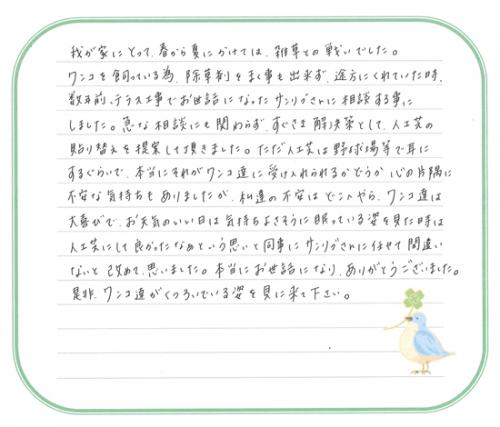 我が家にとって、春から夏にかけては、雑草との戦いでした。
ワンコを飼っている為、除草剤をまく事も出来ず、途方にくれていた時、
数年前、テラス工事でお世話になったサンリグさんに相談する事に
しました。急な相談にも関わらず、すぐさま解決策として、人工芝の
貼り替えを提案して頂きました。ただ人工芝は野球場等で耳に
するぐらいで、本当にそれがワンコ達に受け入れられるかどうか心の片隅に
不安な気持ちもありましたが、私達の不安はどこへやら、ワンコ達は
大喜びで、お天気のいい日は気持ちよさそうに眠っている姿を見た時は
人工芝にして良かったなぁという思いと同事にサンリグさんに任せて間違い
ないと改めて、思いました。本当にお世話になり、ありがとうございました。
是非、ワンコ達がくつろいでいる姿を見に来て下さい。